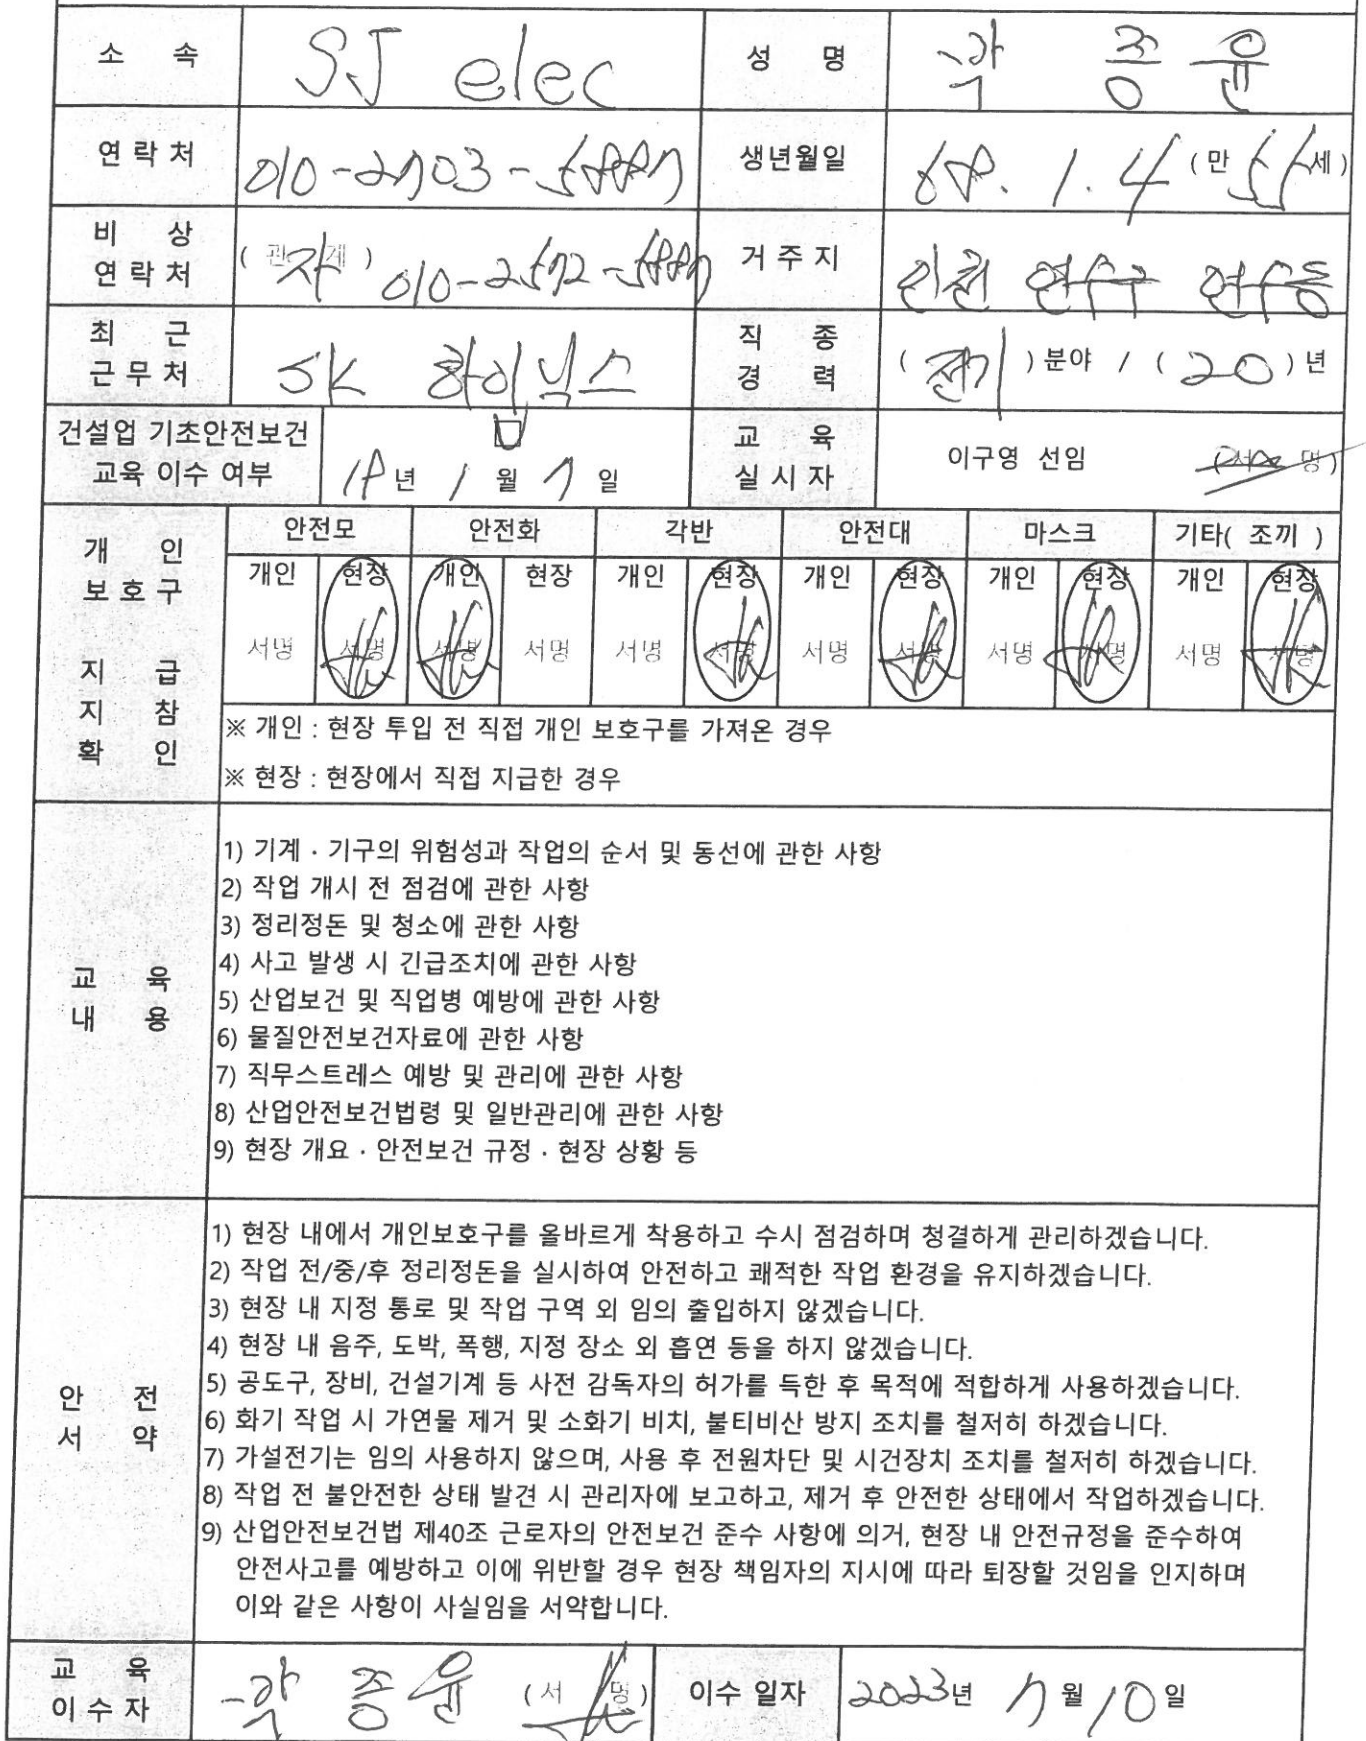 소 속 SJ elec 성 명 곽 종 윤
연락처 010-2703-5887 생년월일 68. 1. 4 (만 55세)
비 상 연락처 (관계) 자 010-2572-5887 거주지 인천 연수구 연수동
최 근 근무처 SK 하이닉스 직 종 경 력 ( 전기 ) 분야 / ( 20 ) 년
건설업 기초안전보건 교육 이수 여부 18년 1월 7일 교 육 실시자 이구영 선임 (서 명)
개 인 보호구 지 급 지 참 확 인
안전모 안전화 각반 안전대 마스크 기타( 조끼 )
개인 현장 개인 현장 개인 현장 개인 현장 개인 현장 개인 현장
서명 서명 서명 서명 서명 서명 서명 서명 서명 서명 서명 서명
※ 개인 : 현장 투입 전 직접 개인 보호구를 가져온 경우
※ 현장 : 현장에서 직접 지급한 경우
교 육 내 용
1) 기계 · 기구의 위험성과 작업의 순서 및 동선에 관한 사항
2) 작업 개시 전 점검에 관한 사항
3) 정리정돈 및 청소에 관한 사항
4) 사고 발생 시 긴급조치에 관한 사항
5) 산업보건 및 직업병 예방에 관한 사항
6) 물질안전보건자료에 관한 사항
7) 직무스트레스 예방 및 관리에 관한 사항
8) 산업안전보건법령 및 일반관리에 관한 사항
9) 현장 개요 · 안전보건 규정 · 현장 상황 등
안 전 서 약
1) 현장 내에서 개인보호구를 올바르게 착용하고 수시 점검하며 청결하게 관리하겠습니다.
2) 작업 전/중/후 정리정돈을 실시하여 안전하고 쾌적한 작업 환경을 유지하겠습니다.
3) 현장 내 지정 통로 및 작업 구역 외 임의 출입하지 않겠습니다.
4) 현장 내 음주, 도박, 폭행, 지정 장소 외 흡연 등을 하지 않겠습니다.
5) 공도구, 장비, 건설기계 등 사전 감독자의 허가를 득한 후 목적에 적합하게 사용하겠습니다.
6) 화기 작업 시 가연물 제거 및 소화기 비치, 불티비산 방지 조치를 철저히 하겠습니다.
7) 가설전기는 임의 사용하지 않으며, 사용 후 전원차단 및 시건장치 조치를 철저히 하겠습니다.
8) 작업 전 불안전한 상태 발견 시 관리자에 보고하고, 제거 후 안전한 상태에서 작업하겠습니다.
9) 산업안전보건법 제40조 근로자의 안전보건 준수 사항에 의거, 현장 내 안전규정을 준수하여
안전사고를 예방하고 이에 위반할 경우 현장 책임자의 지시에 따라 퇴장할 것임을 인지하며
이와 같은 사항이 사실임을 서약합니다.
교 육 이수자 곽 종 윤 (서 명) 이수 일자 2023년 7월 10일